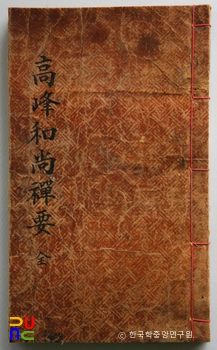 高峰和尚禪要 全
PUBC
ⓒ 한국학중앙연구원